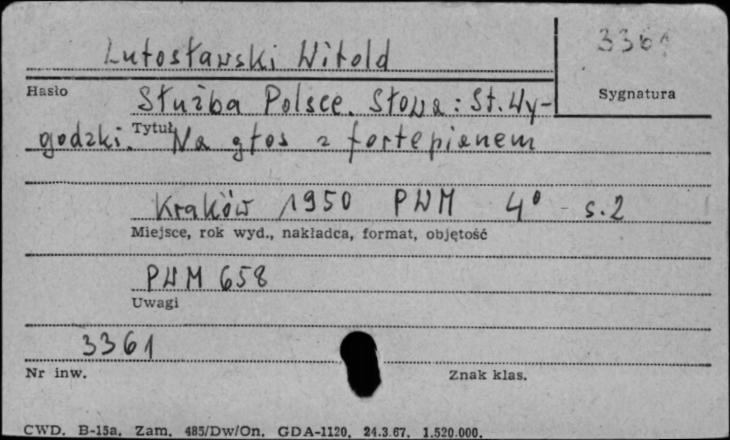 Lutosławski Witold
3361
Hasło
Sygnatura
Służba Polsce. Słowa: St. Wy-
Tytuł
godzki. Na głos z fortepianem
Kraków 1950 PWM 4° s. 2
Miejsce, rok wyd., nakładca, format, objętość
PWM 658
Uwagi
3361
Nr inw.
Znak klas.
CWD. B-15a. Zam. 485/Dw/On. GDA-1120. 24.3.67. 1.520.000.